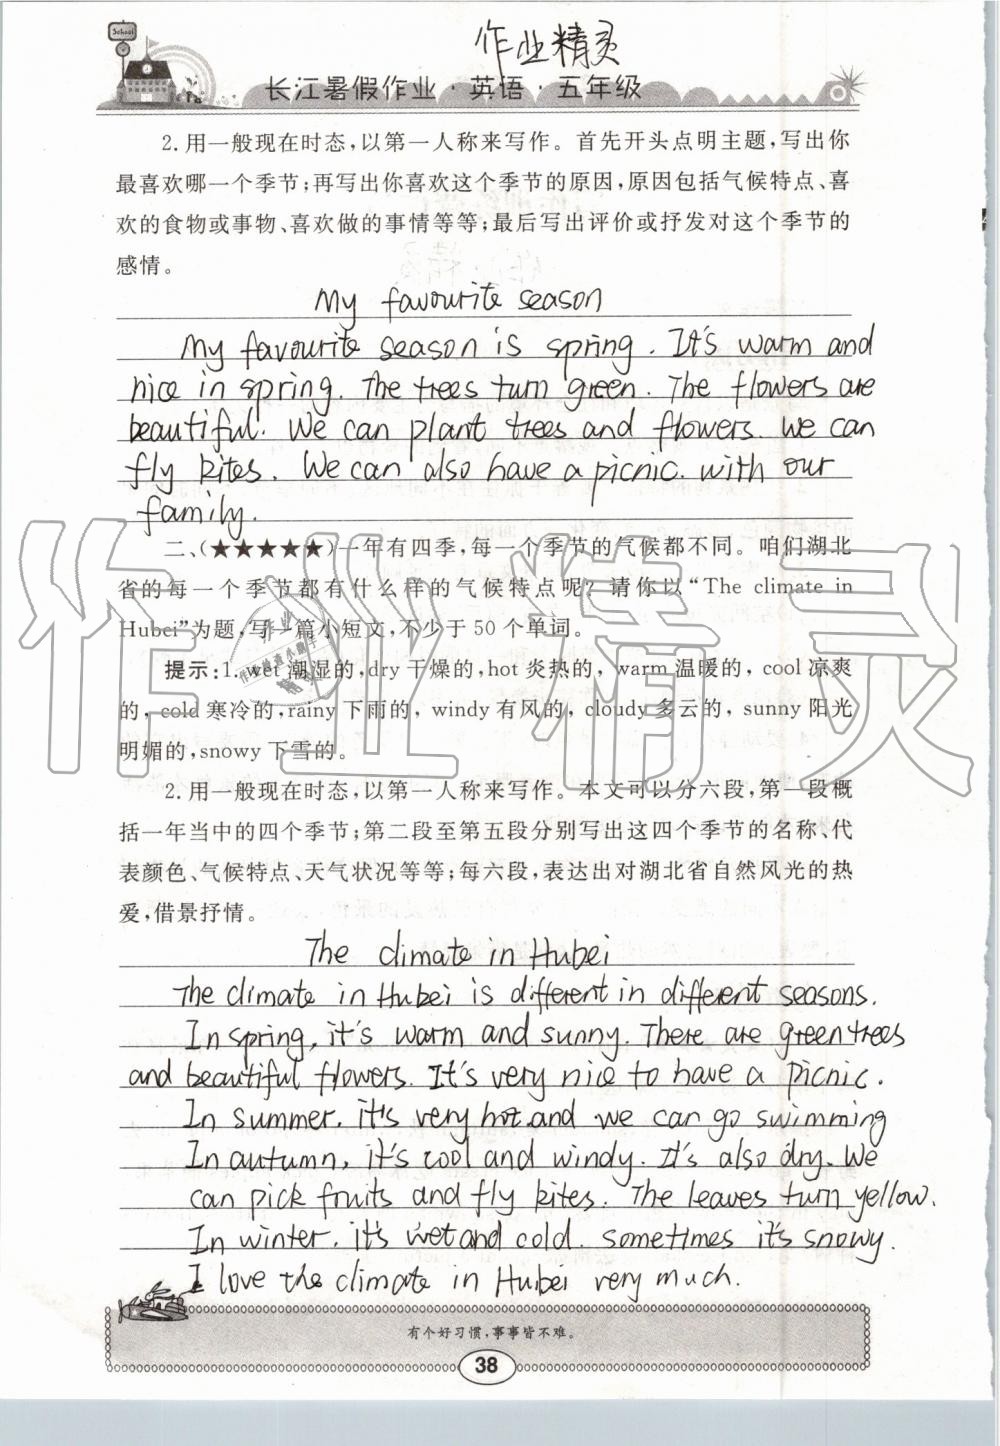 School
作业精灵
长江暑假作业·英语·五年级
2.用一般现在时态,以第一人称来写作。首先开头点明主题,写出你
最喜欢哪一个季节;再写出你喜欢这个季节的原因,原因包括气候特点、喜
欢的食物或事物、喜欢做的事情等等;最后写出评价或抒发对这个季节的
感情。
My favourite season
My favourite season is spring. It's warm and
nice in spring. The trees turn green. The flowers are
beautiful. We can plant trees and flowers. We can
fly kites. We can also have a picnic. with our
family.
二、(★★★★★)一年有四季,每一个季节的气候都不同。咱们湖北
省的每一个季节都有什么样的气候特点呢?请你以“The climate in
Hubei”为题,写一篇小短文,不少于50个单词。
提示:1. wet潮湿的,dry干燥的,hot炎热的,warm温暖的,cool凉爽
的,cold寒冷的,rainy下雨的,windy有风的,cloudy多云的,sunny阳光
明媚的,snowy下雪的。
2.用一般现在时态,以第一人称来写作。本文可以分六段,第一段概
括一年当中的四个季节;第二段至第五段分别写出这四个季节的名称、代
表颜色、气候特点、天气状况等等;每六段,表达出对湖北省自然风光的热
爱,借景抒情。
The climate in Hubei
The climate in Hubei is different in different seasons.
In spring, it's warm and sunny. There are green trees
and beautiful flowers. It's very nice to have a picnic.
In summer, it's very hot, and we can go swimming
In autumn, it's cool and windy. It's also dry. We
can pick fruits and fly kites. The leaves turn yellow.
In winter, it's wet and cold. sometimes it's snowy.
I love the climate in Hubei very much.
有个好习惯,事事皆不难。
38
作业精灵